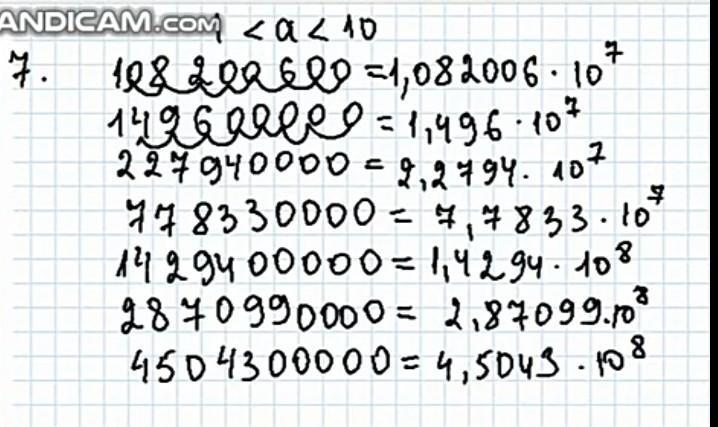 ANDICAM.COM
1 < a < 10
7. 108200600 = 1,082006 · 10⁷
149600000 = 1,496 · 10⁷
227940000 = 2,2794 · 10⁷
778330000 = 7,7833 · 10⁷
1429400000 = 1,4294 · 10⁸
2870990000 = 2,87099 · 10⁸
4504300000 = 4,5043 · 10⁸